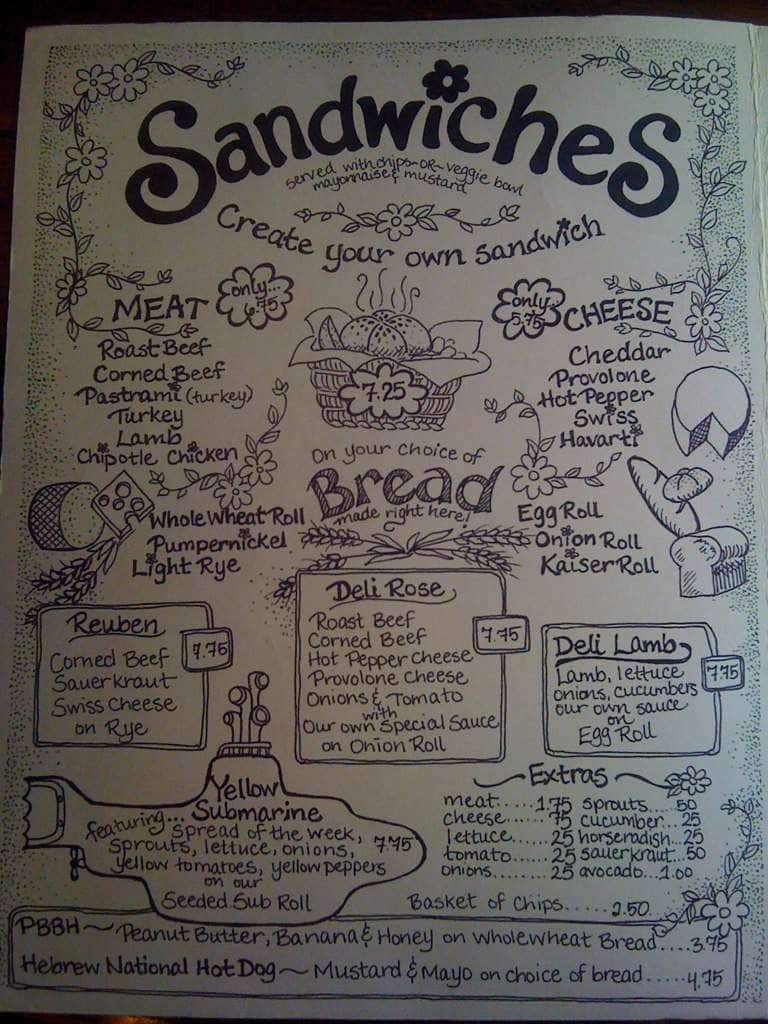 Sandwiches
served with chips -OR- veggie bowl
mayonnaise & mustard
Create your own sandwich
MEAT
only...
6.75
Roast Beef
Corned Beef
Pastrami (turkey)
Turkey
Lamb
Chipotle Chicken
7.25
only...
5.75
CHEESE
Cheddar
Provolone
Hot Pepper
Swiss
Havarti
On your choice of
Bread
made right here!
Whole Wheat Roll
Pumpernickel
Light Rye
Egg Roll
Onion Roll
Kaiser Roll
Reuben
7.75
Corned Beef
Sauerkraut
Swiss Cheese
on Rye
Deli Rose
7.75
Roast Beef
Corned Beef
Hot Pepper Cheese
Provolone Cheese
Onions & Tomato
with
Our own Special Sauce
on Onion Roll
Deli Lamb
7.75
Lamb, lettuce
onions, cucumbers
our own sauce
on
Egg Roll
Yellow
Submarine
featuring...
Spread of the week,
sprouts, lettuce, onions,
yellow tomatoes, yellow peppers
on our
Seeded Sub Roll
7.75
Extras
meat.....1.75 sprouts....50
cheese.....75 cucumber...25
lettuce.....25 horseradish...25
tomato.....25 sauerkraut...50
onions........25 avocado...1.00
Basket of Chips......2.50
PBBH~ Peanut Butter, Banana & Honey on wholewheat Bread....3.75
Hebrew National Hot Dog ~ Mustard & Mayo on choice of bread.....4.75